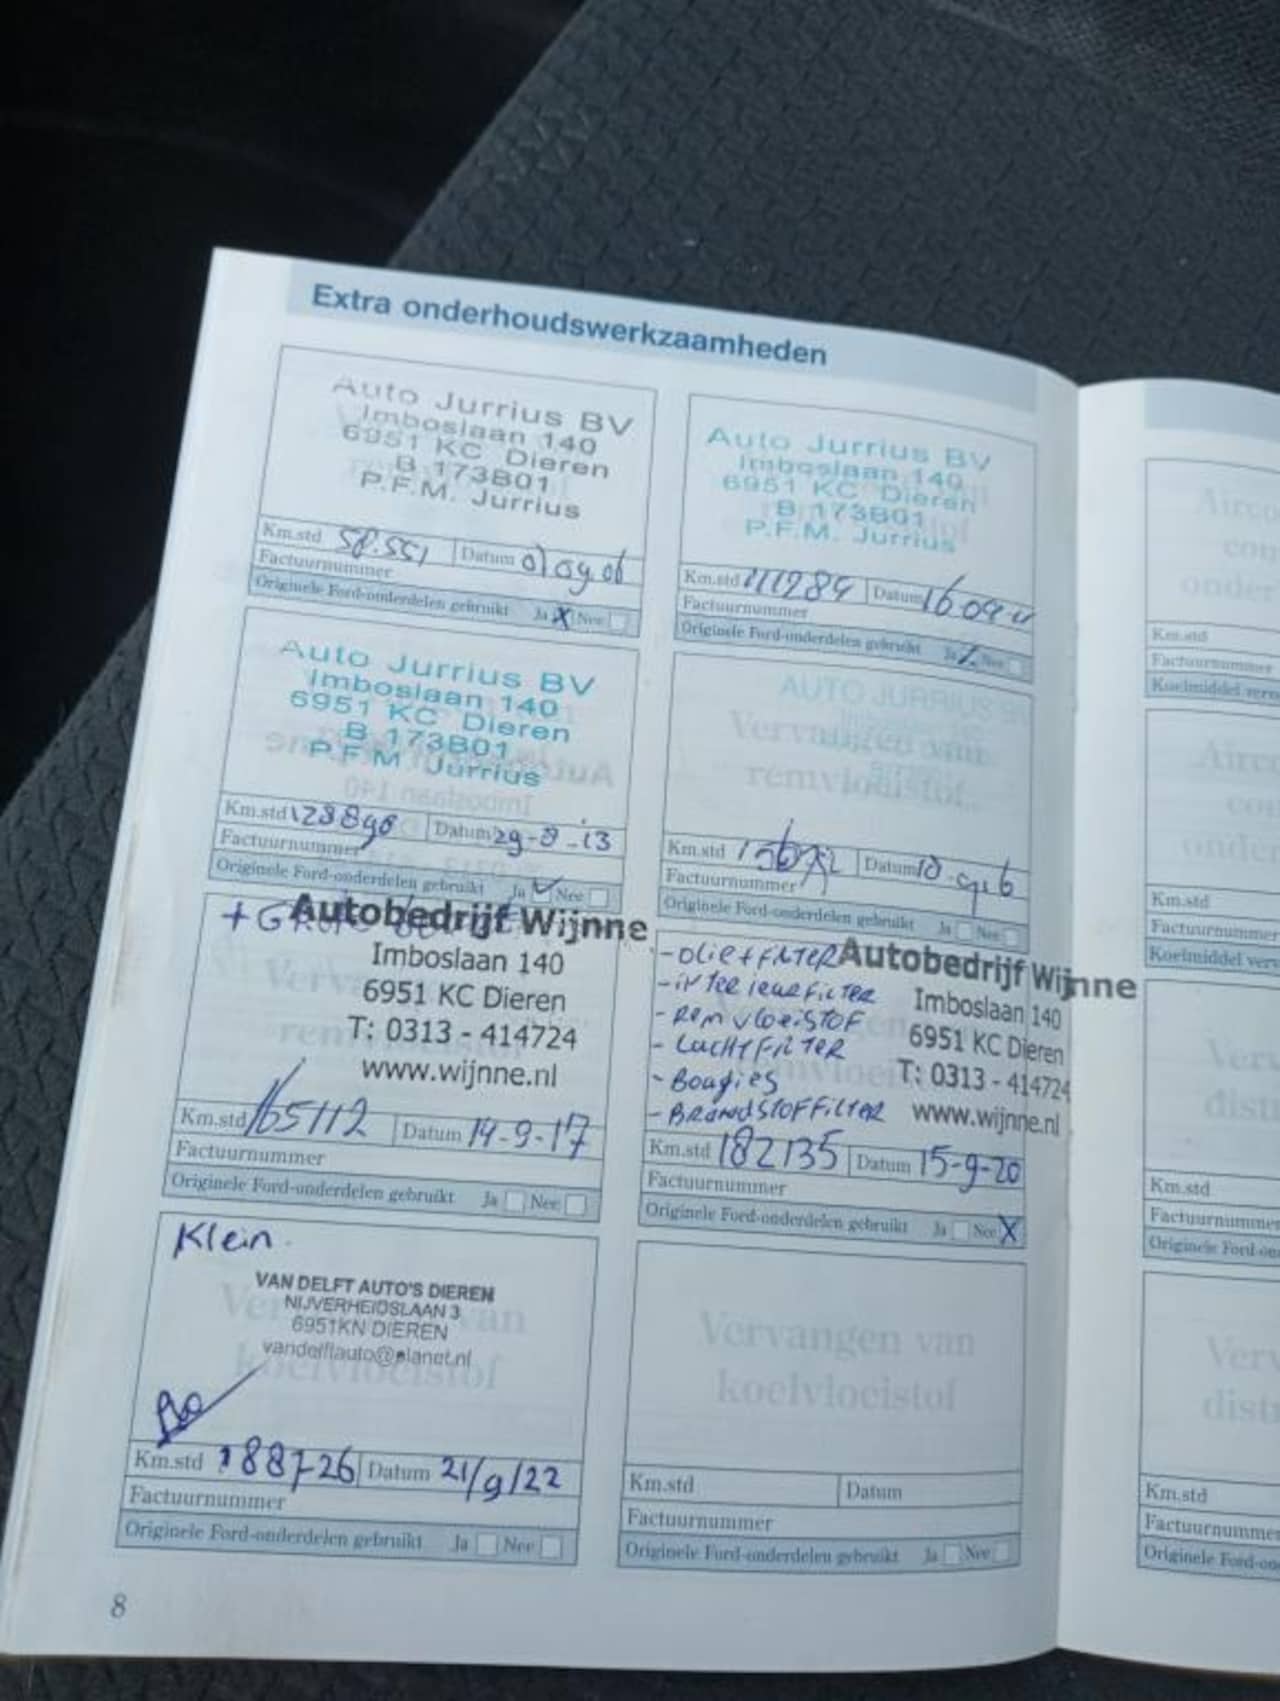 Extra onderhoudswerkzaamheden
Auto Jurrius BV
Imboslaan 140
6951 KC Dieren
B 173B01
P.F.M. Jurrius
Km.std 58.551 Datum 01 09 06
Factuurnummer
Originele Ford-onderdelen gebruikt Ja X Nee
Auto Jurrius BV
Imboslaan 140
6951 KC Dieren
B 173B01
P.F.M. Jurrius
Km.std 111284 Datum 16 09 11
Factuurnummer
Originele Ford-onderdelen gebruikt Ja Nee
Auto Jurrius BV
Imboslaan 140
6951 KC Dieren
B 173B01
P.F.M. Jurrius
Km.std 128890 Datum 29-8-13
Factuurnummer
Originele Ford-onderdelen gebruikt Ja Nee
AUTO JURRIUS
Vervangen van
remvloeistof
Km.std Datum
Factuurnummer
Originele Ford-onderdelen gebruikt Ja Nee
Autobedrijf Wijnne
Imboslaan 140
6951 KC Dieren
T: 0313 - 414724
www.wijnne.nl
Km.std 165112 Datum 14-9-17
Factuurnummer
Originele Ford-onderdelen gebruikt Ja Nee
- OLIE + FILTER
- interieurfilter
- Remvloeistof
- Luchtfilter
- Bougies
- Brandstoffilter
Autobedrijf Wijnne
Imboslaan 140
6951 KC Dieren
T: 0313 - 414724
www.wijnne.nl
Km.std 182135 Datum 15-9-20
Factuurnummer
Originele Ford-onderdelen gebruikt Ja Nee X
Klein
VAN DELFT AUTO'S DIEREN
NIJVERHEIDSLAAN 3
6951KN DIEREN
vandelftauto@planet.nl
Km.std 188726 Datum 21/9/22
Factuurnummer
Originele Ford-onderdelen gebruikt Ja Nee
Vervangen van
koelvloeistof
Km.std Datum
Factuurnummer
Originele Ford-onderdelen gebruikt Ja Nee
8
Km.std
Factuurnummer
Km.std
Factuurnummer
Km.std
Factuurnummer
Km.std
Factuurnummer